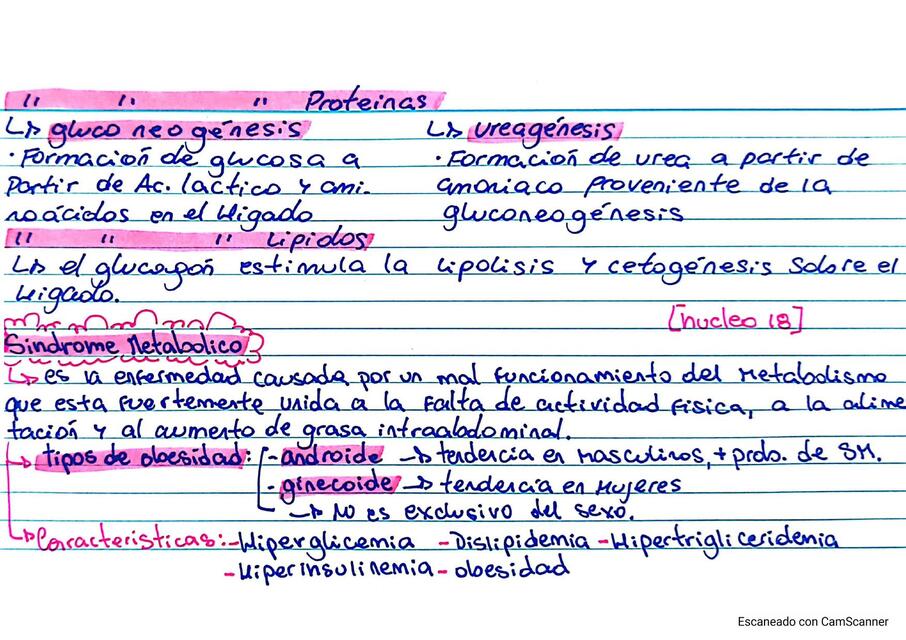 " " " Proteinas
↳ gluconeogénesis
· Formación de glucosa a
partir de Ac. láctico y ami-
noácidos en el Higado
↳ ureagénesis
· Formación de urea a partir de
amoniaco proveniente de la
gluconeogénesis
" " " Lipidos
↳ el glucagón estimula la lipolisis y cetogénesis sobre el
Higado.
[nucleo 18]
Sindrome Metabolico
↳ es la enfermedad causada por un mal funcionamiento del Metabolismo
que esta fuertemente unida a la falta de actividad fisica, a la alime
tación y al aumento de grasa intraabdominal.
↳ tipos de obesidad: - androide → tendencia en masculinos, + prob. de SM.
- ginecoide → tendencia en mujeres
→ No es exclusivo del sexo.
↳ Caracteristicas: - Hiperglicemia - Dislipidemia - Hipertrigliceridemia
- Hiperinsulinemia - obesidad
Escaneado con CamScanner